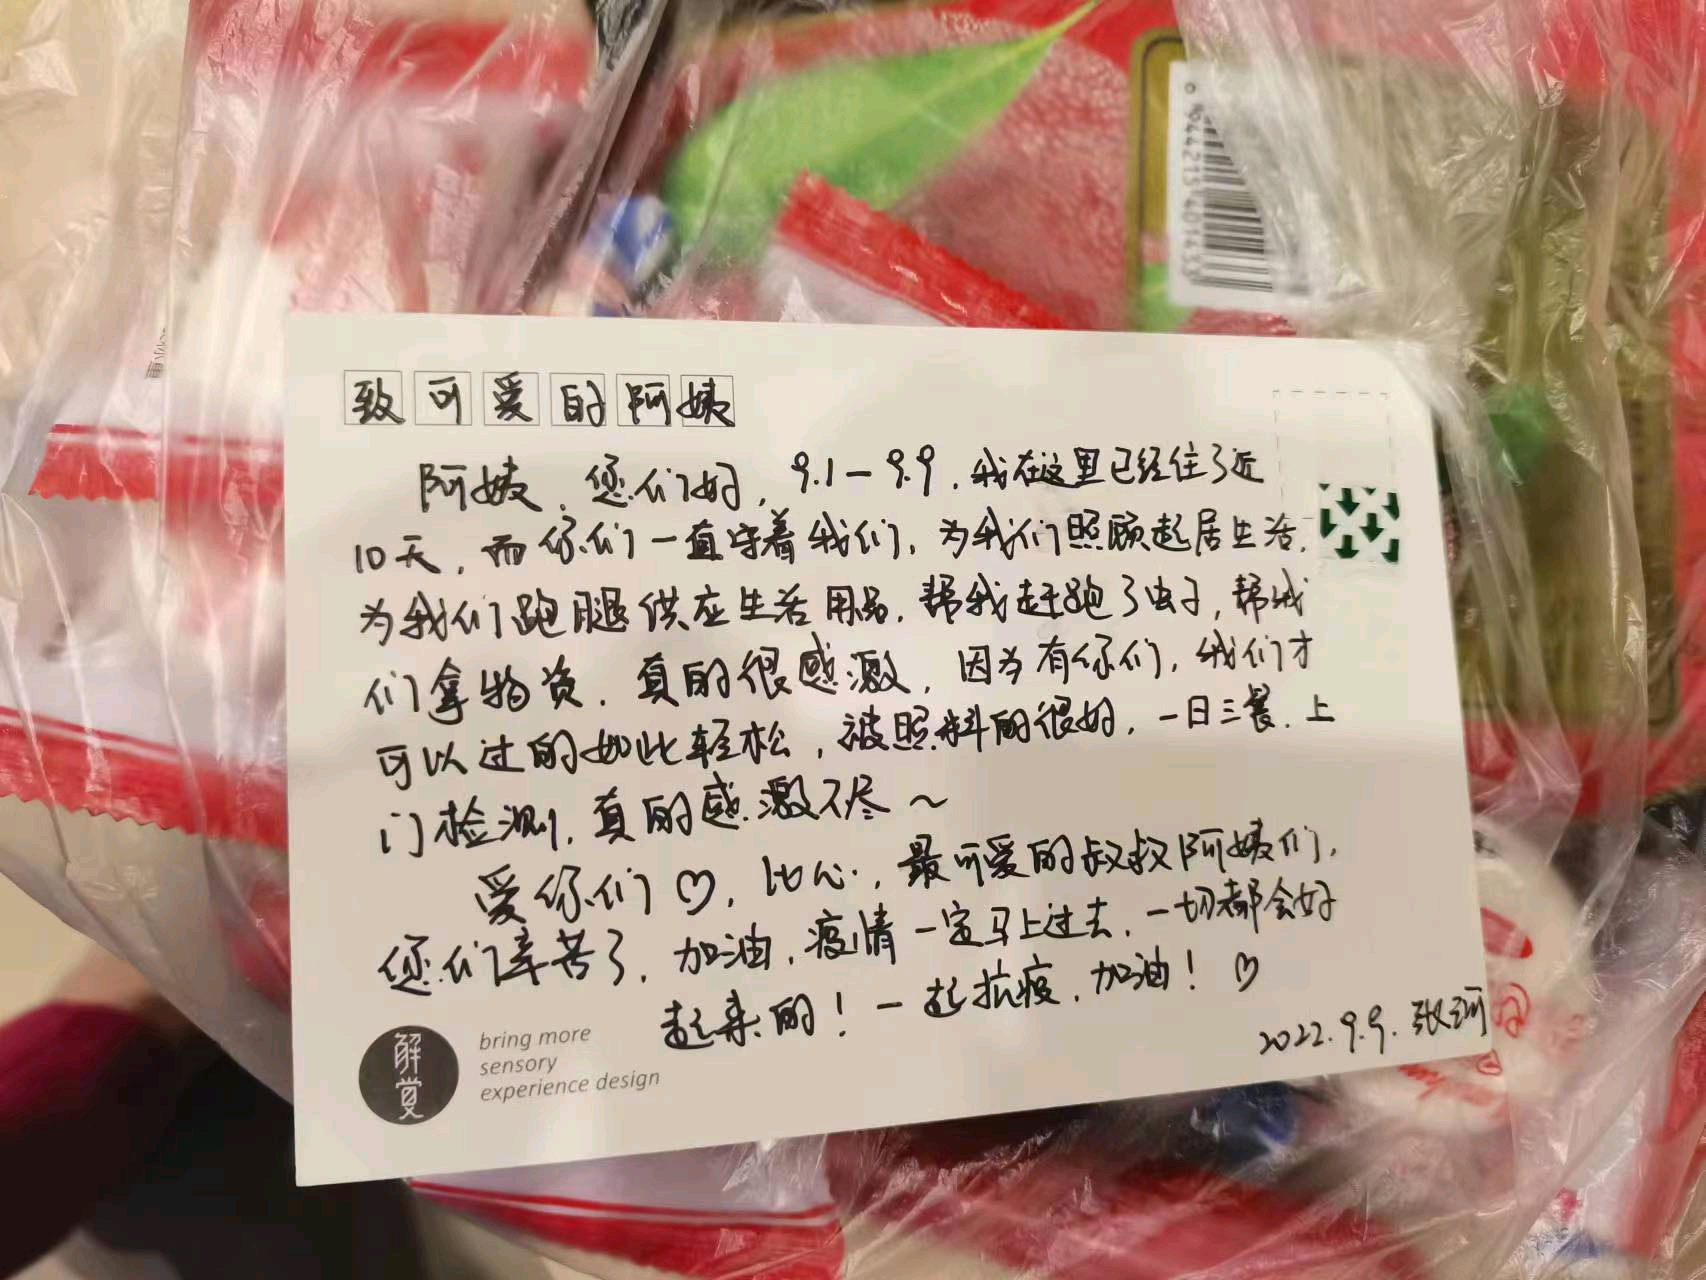 6944215401433
致可爱的阿姨
阿姨、您们好，9.1－9.9，我在这里已经住了近
10天，而你们一直守着我们，为我们照顾起居生活，
为我们跑腿供应生活用品，帮我赶跑了虫子，帮我
们拿物资，真的很感激，因为有你们，我们才
可以过的如此轻松，被照料的很好，一日三餐，上
门检测，真的感激不尽～
爱你们♡，比心，最可爱的叔叔阿姨们，
您们辛苦了，加油，疫情一定马上过去，一切都会好
起来的！一起抗疫，加油！♡
2022.9.9. 张珂
解觉
bring more
sensory
experience design